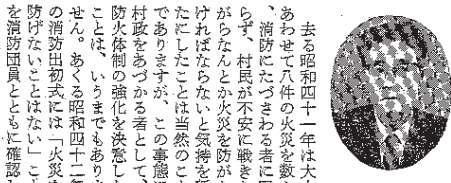 去る昭和四十一年は大小
あわせて八件の火災を数え
、消防にたづさわる者に限
らず、村民が不安に戦きな
がらなんとか火災を防がな
ければならないと気持を新
たにしたことは当然のこと
でありますが、この事態に
村政をあづかる者として、
防火体制の強化を決意した
ことは、いうまでもありま
せん。あくる昭和四十二年
の消防出初式には「火災を
防げないことはない」こと
を消防団員とともに確認し